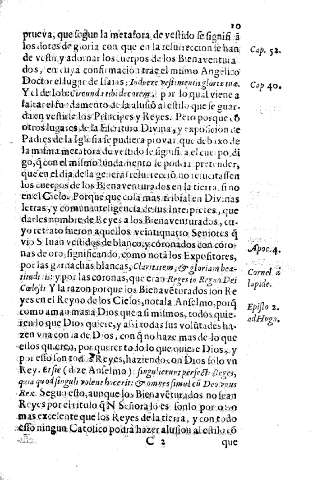 10
prueva, que segun la metafora, de vestido se signifiā
los dotes de gloria con que en la resurreccion se han
de vestir y adornar los cuerpos de los Bienaventura
dos, en cuya confirmacion trae el mismo Angelico
Cap. 52.
Doctor el lugar de Isaias: Induere vestimentis gloriæ tuæ.
Y el de Iob: Circunda tibi decorem; por lo qual viene a
Cap 40.
faltar el fundamento de la alusiō al estilo que se guar-
da en vestirse los Principes y Reyes. Pero porque cō
otros lugares de la Escritura Divina, y exposicion de
Padres de la Iglesia se pudiera provar, que debaxo de
la misma metafora de vestido se signifi a el cuerpo, di
go, q̄ con el mismo fundamento se podria pretender,
que en el dia de la general resurrecciō no resucitassen
los cuerpos de los Bienaventurados en la tierra, si no
en el Cielo. Porque que cosa mas tribial en Divinas
letras, y comun inteligencia de sus interpretes, que
darles nombre de Reyes a los Bienaventurados, cu-
yo retrato fueron aquellos veintiquatro Señores q̄
viò S Iuan vestidos de blanco, y coronados con coro-
Apoc. 4.
nas de oro, significando, como notā los Expositores,
por las garnachas blancas, Claritatem, & gloriam bea-
Cornel. à
titudinis: y por las coronas, que eran Reges in Regno Dei
lapide.
Cœlesti. Y la razon porque los Bienavēturados son Re
yes en el Reyno de los Cielos, nota la Anselmo, porq̄
Epist. 2.
como aman mas a Dios que a si mismos, todos quie-
ad Hugo.
ren lo que Dios quiere, y assi todas sus volūtades ha-
zen vna con la de Dios, con q̄ no haze mas de lo que
ellos quierē, por querer todo lo que quiere Dios, y
por esso son todos Reyes, haziendo con Dios solo vn
Rey. Et sic (dize Anselmo) singuli erunt perfecti Reges,
quia quod singuli volent hoc erit: & omnes simul cū Deo vnus
Rex. Segun esto, aunque los Bienavēturados no sean
Reyes por el titulo q̄ N Señora lo es son lo por otro
mas excelente que los Reyes de la tierra, y con todo
esso ningun Catolico podrà hazer alusion al estilo cō
C 2
que